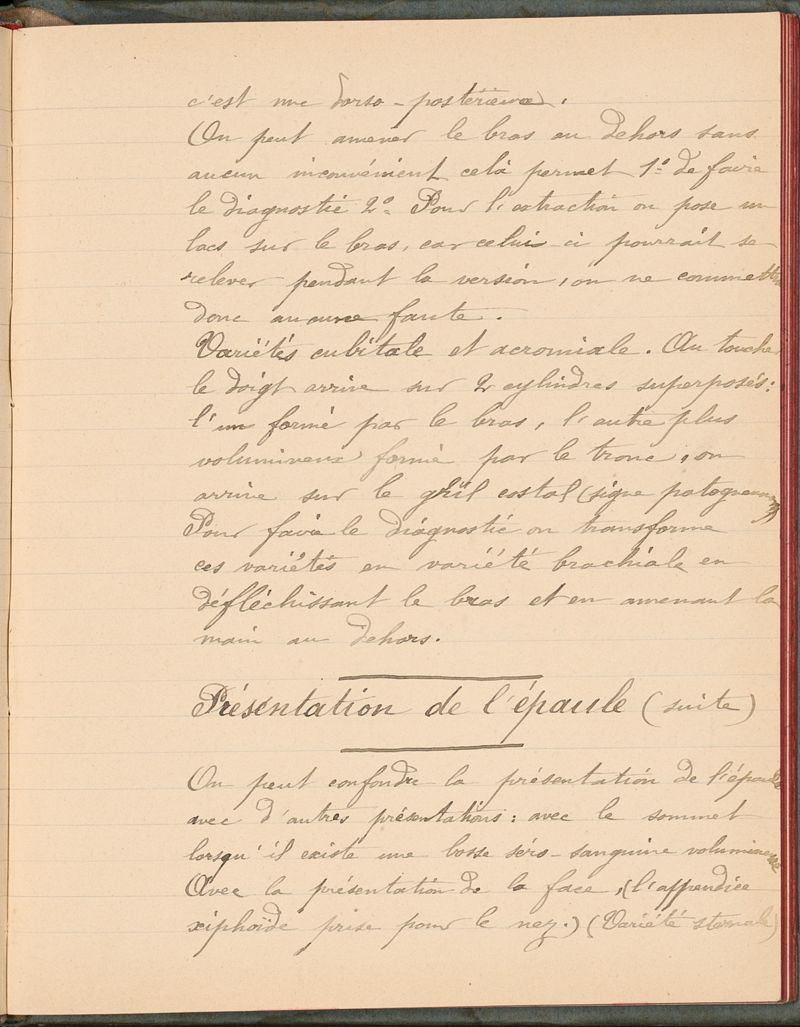 c'est une dorso-postérieure.
On peut amener le bras en dehors sans
aucun inconvénient celà permet 1º de faire
le diagnostic 2º. Pour l'extraction on pose un
lacs sur le bras, car celui-ci pourrait se
relever pendant la version, on ne commettra
donc aucune faute.
Variétés cubitale et acromiale. Au toucher
le doigt arrive sur 2 cylindres superposés:
l'un formé par le bras, l'autre plus
volumineux formé par le tronc, on
arrive sur le gril costal (signe
Pour faire le diagnostic on transforme
ces variétés en variété brachiale en
défléchissant le bras et en amenant la
main au dehors.
Présentation de l'épaule (suite)
On peut confondre la présentation de l'épaule
avec d'autres présentations: avec le sommet
lorsqu'il existe une bosse séro-sanguine volumineuse
Avec la présentation de la face, (l'appendice
xiphoïde prise pour le nez.) (Variété sternale)